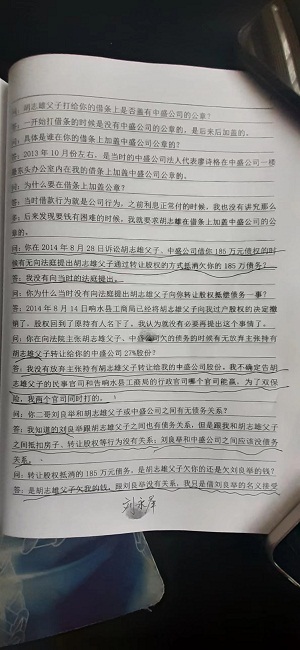 问：胡志雄父子打给你的借条上是否盖有中盛公司的公章？
答：一开始打借条的时候是没有中盛公司的公章的，是后来后加盖的。
问：具体是谁在你的借条上加盖中盛公司公章的？
答：2013年10月份左右，是当时的中盛公司法人代表廖诗格在中盛公司一楼
最东头办公室内在我的借条上加盖中盛公司公章的。
问：为什么要在借条上加盖公章？
答：当时借款行为就是公司行为，之前利息正常付的时候，我也没有讲究那么
多，后来发现要钱有困难的时候，我就要求胡志雄在借条上加盖中盛公司的公
章的。
问：你在2014年8月28日诉讼胡志雄父子、中盛公司借你185万元债权的时
候有无向法庭提出胡志雄父子通过转让股权的方式抵消欠你的185万债务？
答：我没有向当时的法庭提出。
问：你为什么当时没有向法庭提出胡志雄父子向你转让股权抵偿债务一事？
答：2014年8月14日响水县工商局已经将胡志雄父子向我过户股权的决定撤
销了，股权回到了原持有人名下了，我认为就没有必要再提出这个事情了。
问：你在向法院主张胡志雄父子、中盛公司欠的债务的时候有无放弃主张持有
胡志雄父子转让给你的中盛公司27%股份？
答：我没有放弃主张持有胡志雄父子转让给我的中盛公司股份，我不确定告胡
志雄父子的民事官司和告响水县工商局的行政官司哪个官司能赢，为了双保
险，我两个官司同时打的。
问：你二哥刘良举和胡志雄父子或中盛公司之间有无债务关系？
答：我知道的刘良举跟胡志雄父子之间也有债务关系，但是跟我和胡志雄父子
之间抵扣房子、转让股权等行为没有关系；刘良举和中盛公司之间应该没债务
关系。
问：转让股权抵消的185万元债务，是胡志雄父子欠你的还是欠刘良举的钱？
答：是胡志雄父子欠我的钱，跟刘良举没有关系，我只是借刘良举的名义接受